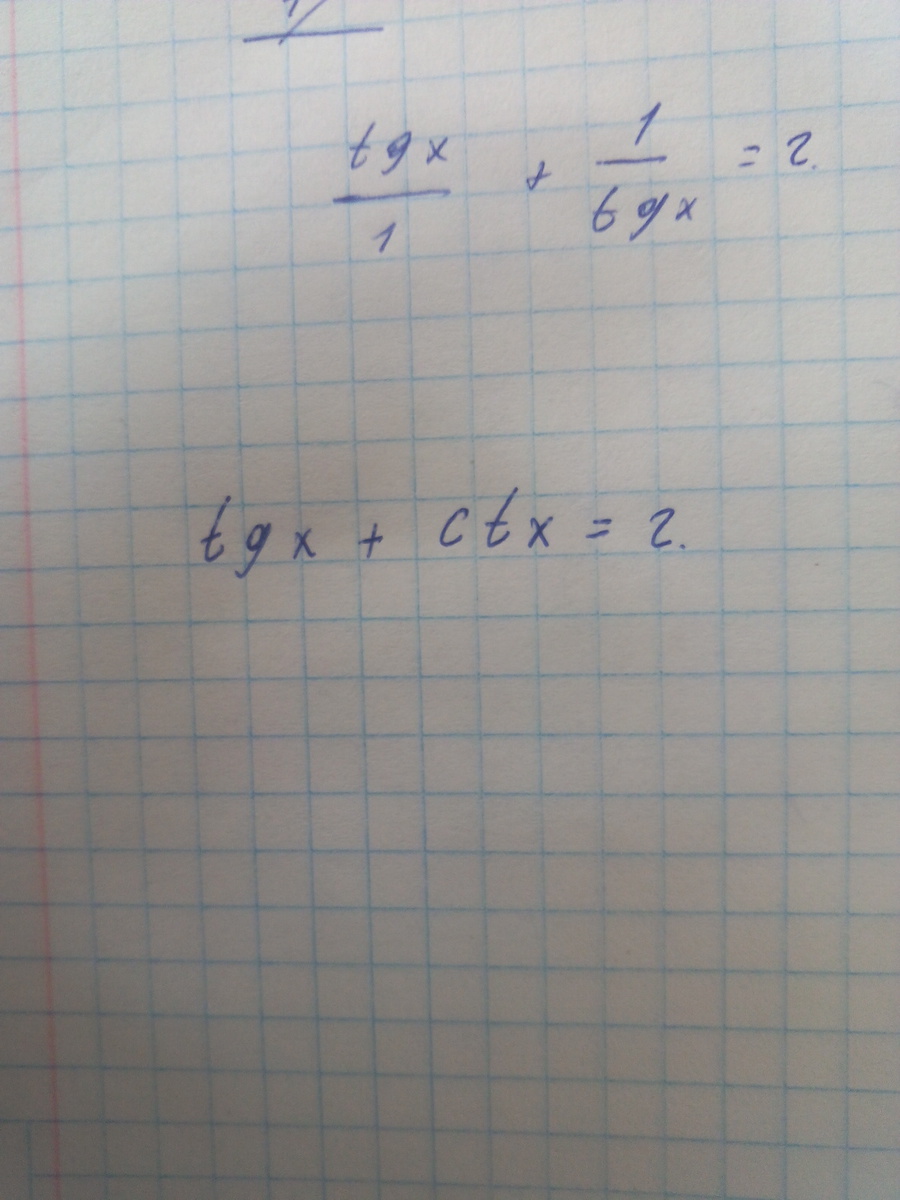 tgx/1 + 1/tgx = 2.
tgx + ctx = 2.